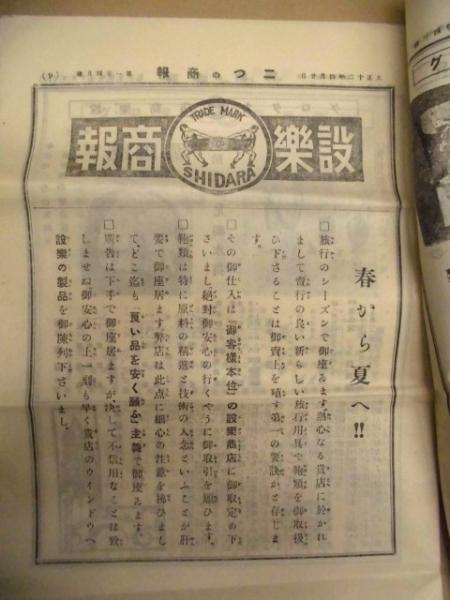 大正十二年四月廿日
二つの商報
第一巻四月號
(９)
設樂商報
TRADE MARK
SHIDARA
春から夏へ!!
□旅行のシーズンで御座ゐます。熱心なる貴店に於かれ
まして賣行の良い新らしい旅行用具や鞄類を御取扱
ひ下さることは御賣上を殖す第一の要訣かと存じま
す。
□その御仕入は「御客樣本位」の設樂商店に御取定め下
さいまし、絶對御安心の行くやうに御取引を願ひます。
□鞄類は特に原料の精選と技術の入念といふことが肝
要で御座居ます弊店は此点に細心の注意を拂ひまし
て、どこ迄も「良い品を安く願ふ」主義で御座ゐます。
□廣告は下手で御座居ますが、決して不信用なことは致
しませぬ御安心の上一刻も早く貴店のウインドウへ
設樂の製品を御陳列下さいまし。